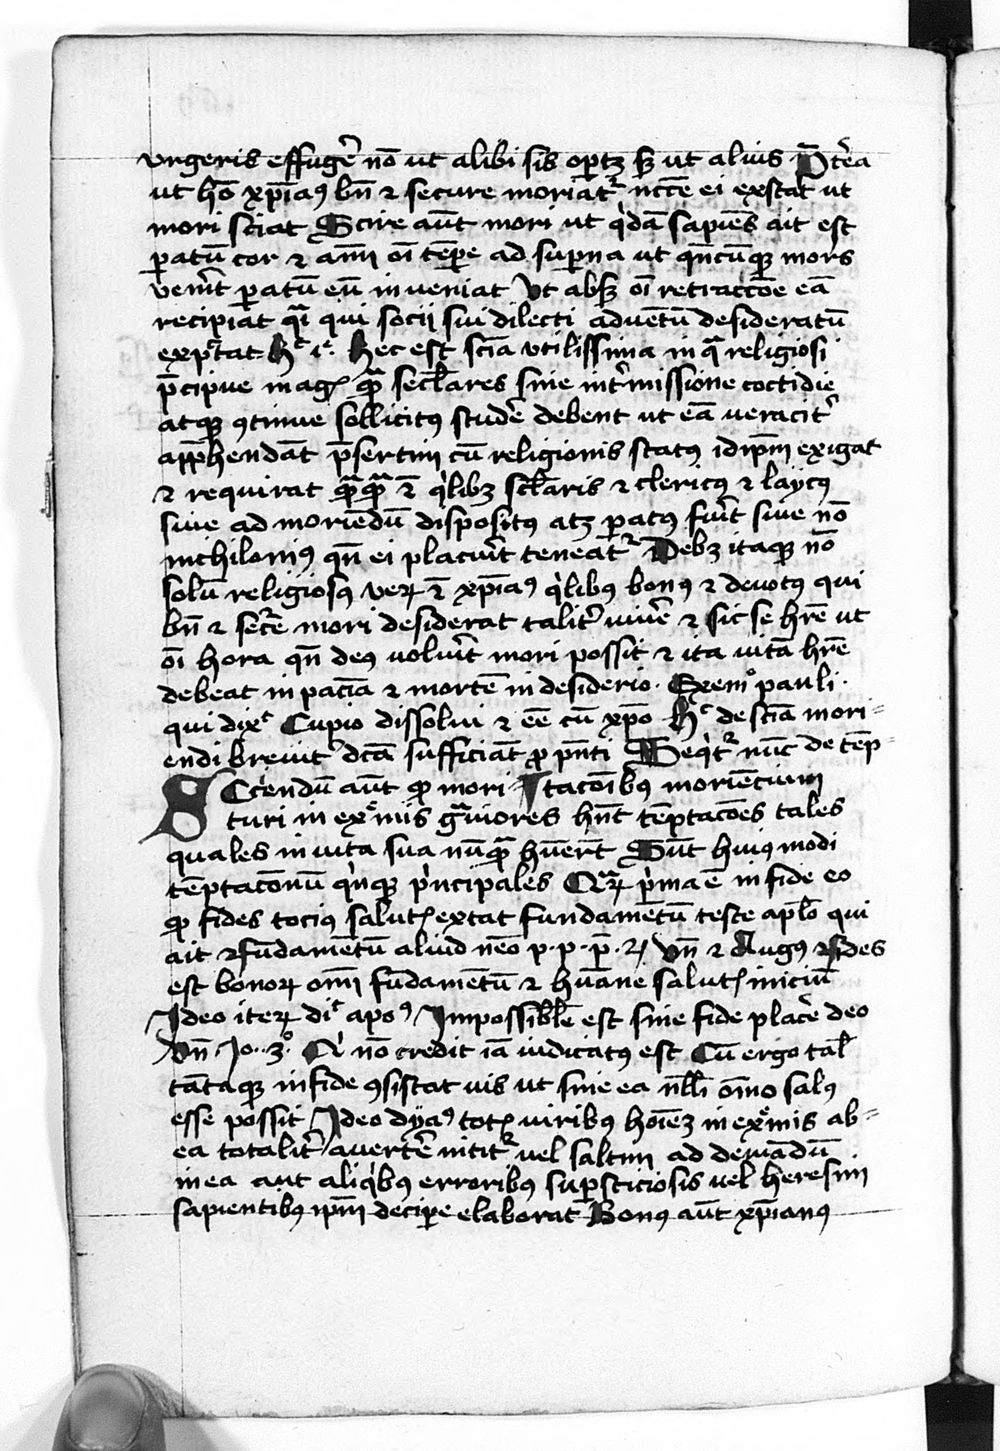 vrgeris effugē nō ut alibi sis oportꝫ sꝫ ut alius Pt̄ea
ut hō xp̄ianꝰ bn̄ ⁊ secure moriat᷑ necc̄e ei exstat ut
mori sciat Scire aūt mori ut q̇dā sapiēs ait est
ꝑatū cor ⁊ aīm oī tēpe ad suꝑna ut qn̄cūqꝫ mors
ven̄it ꝑatū eū inveniat Vt absqꝫ oī retracc̄oe eā
recipiat qͣi qui socij sui dilecti aduētū desideratū
expc̄tat hͨ i͛ Hec est scīa vtilissima in qͣ religiosi
p̄cipue magꝭ qͣꝫ secl̄ares sine int̄missione cottidie
atqꝫ ꝯtinue sollicitꝰ studē debent ut eā ueracit᷑
app̄hendāt p̄sertim cū religionis statꝰ idip̄m exigat
⁊ requirat qͣꝫqͣꝫ ⁊ q̇libꝫ scl̄aris ⁊ clericꝰ ⁊ laycꝰ
siue ad moriēdū dispositꝰ atqꝫ ꝑatꝰ fuīt siue nō
nichilominꝰ qn̄ ei placuīt teneat᷑ Debꝫ itaqꝫ nō
solū religiosꝰ veꝝ ⁊ xp̄ianꝰ q̇libꝫ bonꝰ ⁊ deuotꝰ qui
bn̄ ⁊ sec̄e mori desiderat talit᷑ viuē ⁊ sic se hr̄e ut
oī hora qn̄ deꝰ voluīt mori possit ⁊ ita vitā hr̄e
debeat in pacīa ⁊ mortē in desiderio . Exemº pauli .
qui dixͭ Cupio dissolui ⁊ eē cū xp̄o Hͨ de scīa mori=
endi breuit᷑ dc̄a sufficiāt ꝓ pn̄ti Seqͥt᷑ nūc de tēp=
SCiendū aūt ꝙ mori- Itaco͞ibꝰ morienciū
turi in exͤmis gͣuiores hn̄t tēptac̄oes tales
quales in vita sua nūqͣꝫ hūer̄t Sūt huiꝰmodi
tēptac̄onū qͥnqꝫ pͥncipales Qͣꝝ pͥma ē in fide eo
ꝙ fides tociꝰ salutꝭ extat fundamētū teste apl̄o qui
ait ⁊ fūdamētū aliud nēo p . p . p̄ . ⁊ Vn̄ ⁊ Augꝰ ⁊ fides
est bonoꝝ om̄ fūdamētū ⁊ hūane salutꝭ iniciū
Ideo iteꝝ diͨ apoꝰ Impossibl̄e est sine fide placē deo
Vn̄ Jo . 3º . Qͥ nō credit iā iudicatꝰ est Cū ergo tal̄
tātaqꝫ in fide ꝯsistat vis ut sine ea nll̄i om̄o salꝰ
esse possit Ideo dyaꝰ totꝭ viribꝰ hoīeꝫ in exͤmis ab=
ea totalit᷑ auertē nitit᷑ vel saltim ad deuiādū
in ea aut aliqͥbꝰ erroribꝰ suꝑsticiosis vel heresim
sapientibꝰ ip̄m deciꝑe elaborat Bonꝰ aūt xp̄ianꝰ